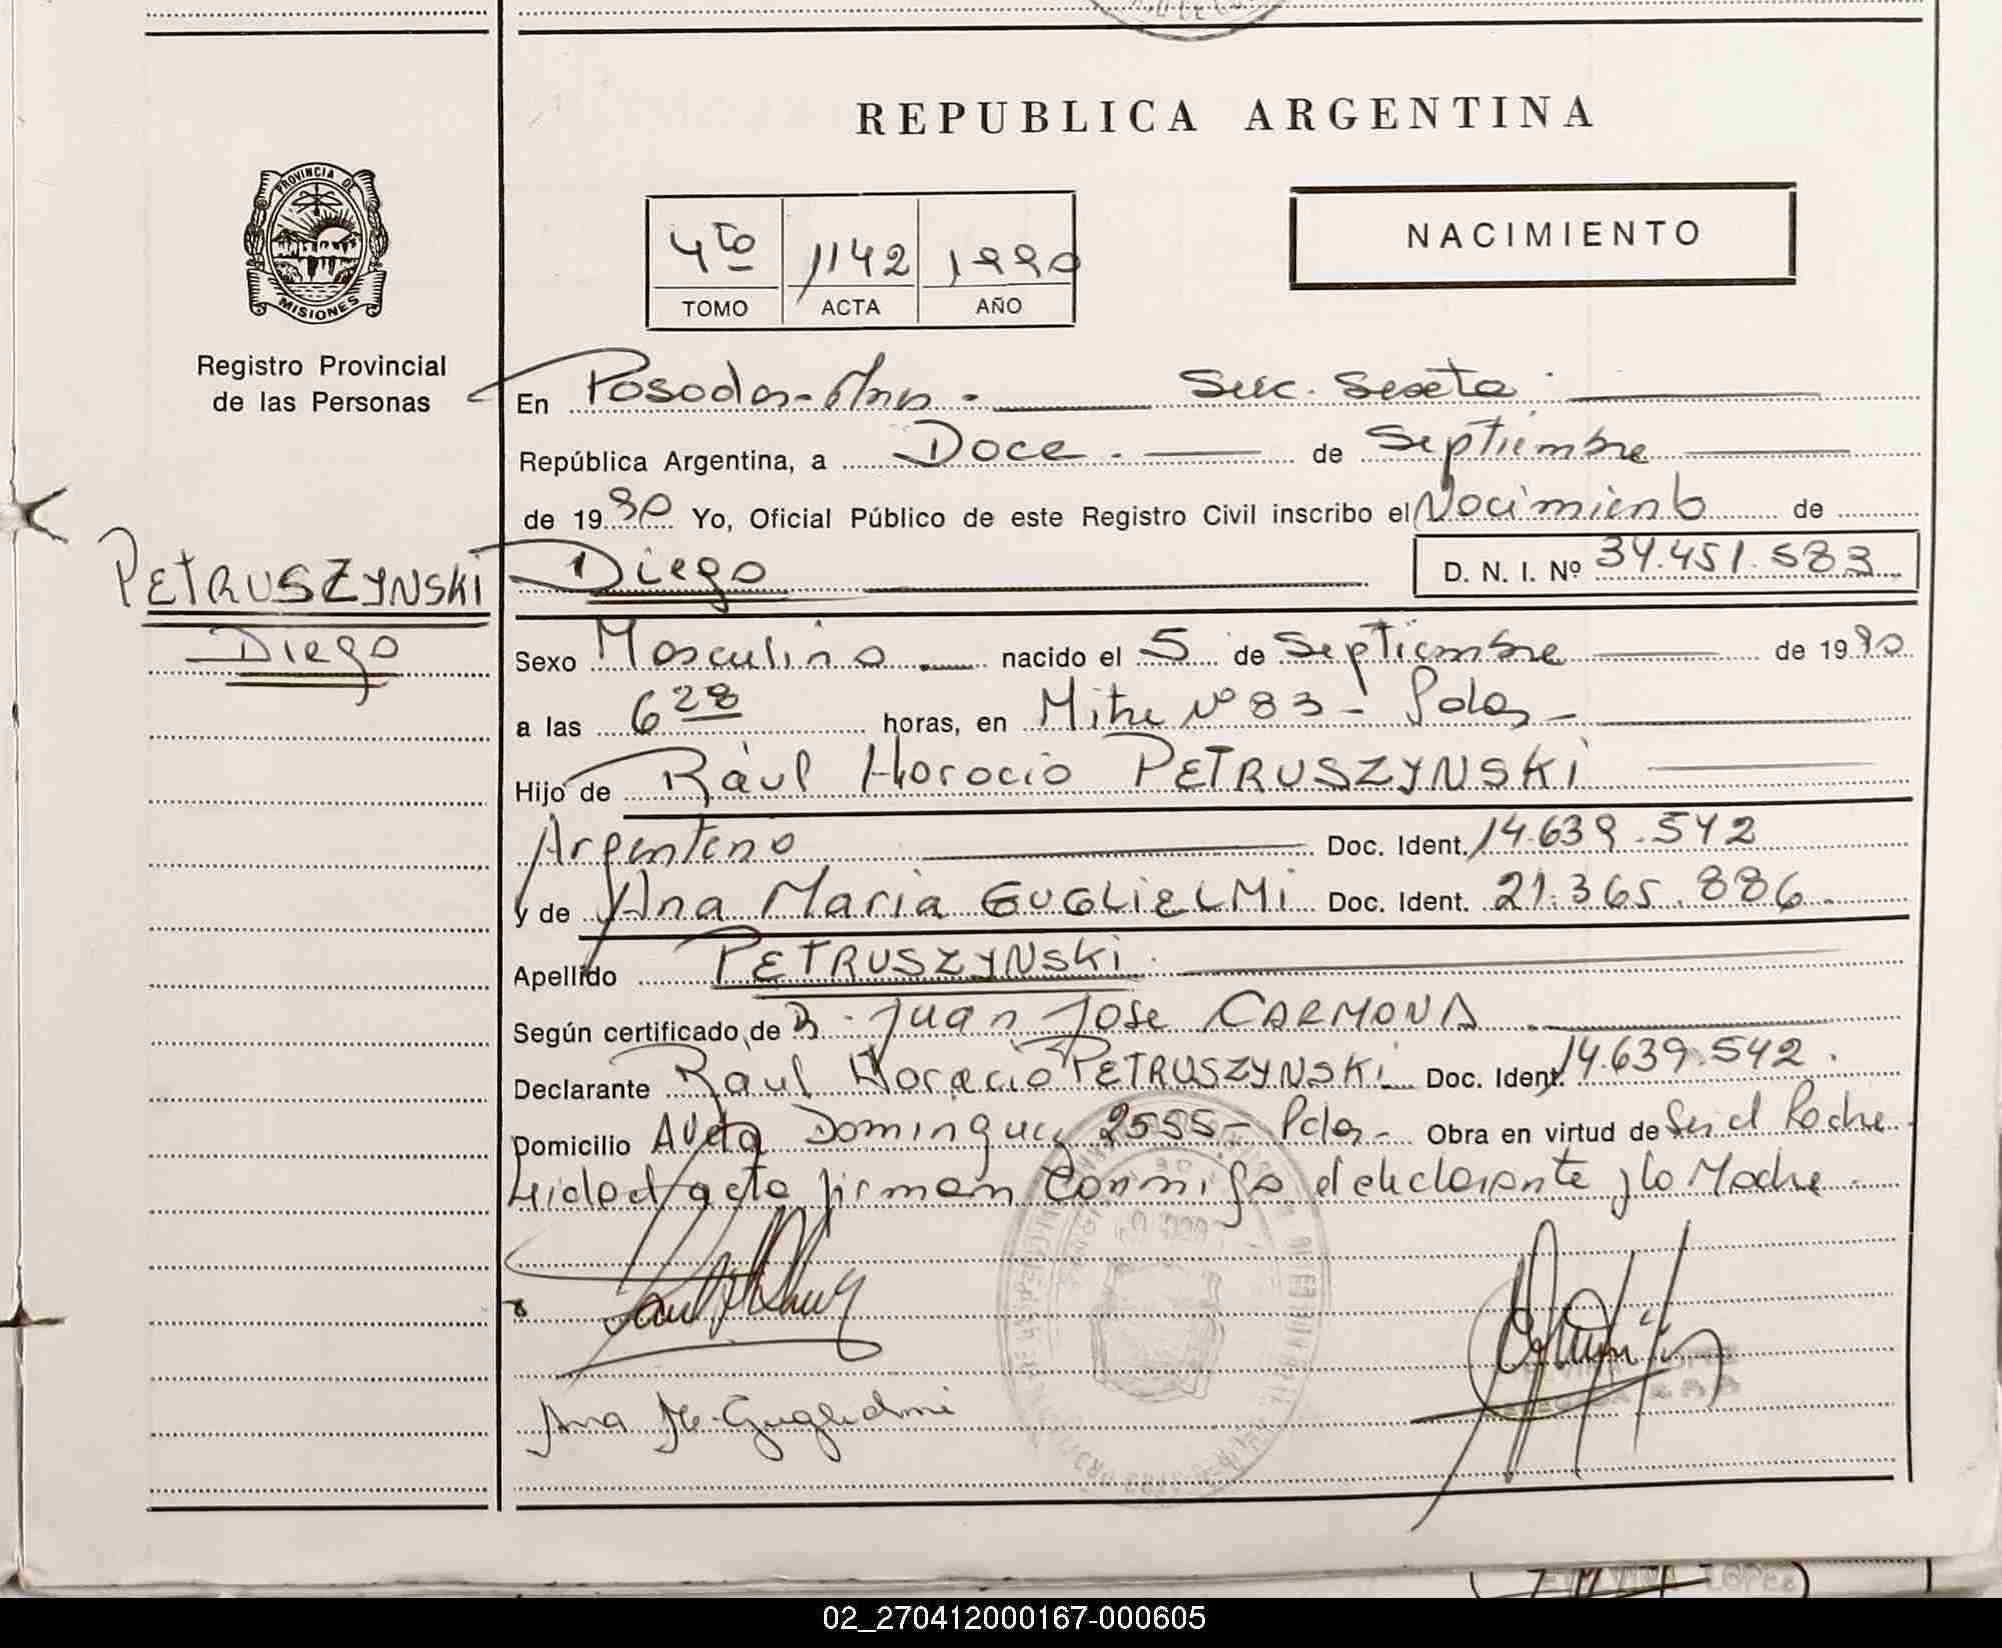 REPUBLICA ARGENTINA
PROVINCIA DE
MISIONES
Registro Provincial
de las Personas
NACIMIENTO
4to 1142 1990
TOMO ACTA AÑO
En Posadas - Mnes - Secc. Sexta
República Argentina, a Doce de Septiembre
de 1990 Yo, Oficial Público de este Registro Civil inscribo el Nacimiento de
PETRUSZYNSKI
Diego
Diego D. N. I. Nº 34.451.583
Sexo Masculino nacido el 5 de Septiembre de 1990
a las 6 28 horas, en Mitre Nº 83 - Pdas -
Hijo de Raúl Horacio PETRUSZYNSKI
Argentino Doc. Ident. 14.639.542
y de Ana Maria GUGLIELMI Doc. Ident. 21.365.886
Apellido PETRUSZYNSKI
Según certificado de Juan Jose CARMONA
Declarante Raul Horacio PETRUSZYNSKI Doc. Ident. 14.639.542
Domicilio Avda Dominguez 2555 - Pdas - Obra en virtud de Ser el Padre
Leida el acta firman conmigo el declarante y la Madre
Ana M. Guglielmi
02_270412000167-000605